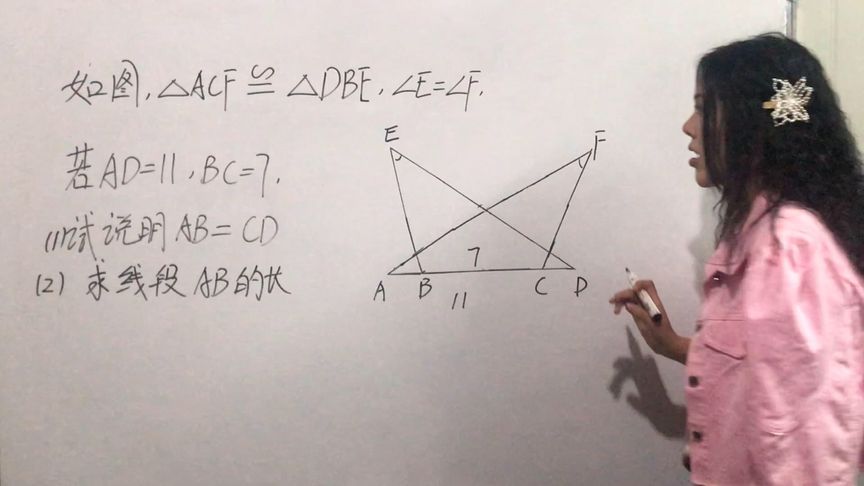 如图,△ACF≌△DBE,∠E=∠F,
若AD=11,BC=7,
(1)试说明AB=CD
(2)求线段AB的长
E
F
7
A
B
C
D
11